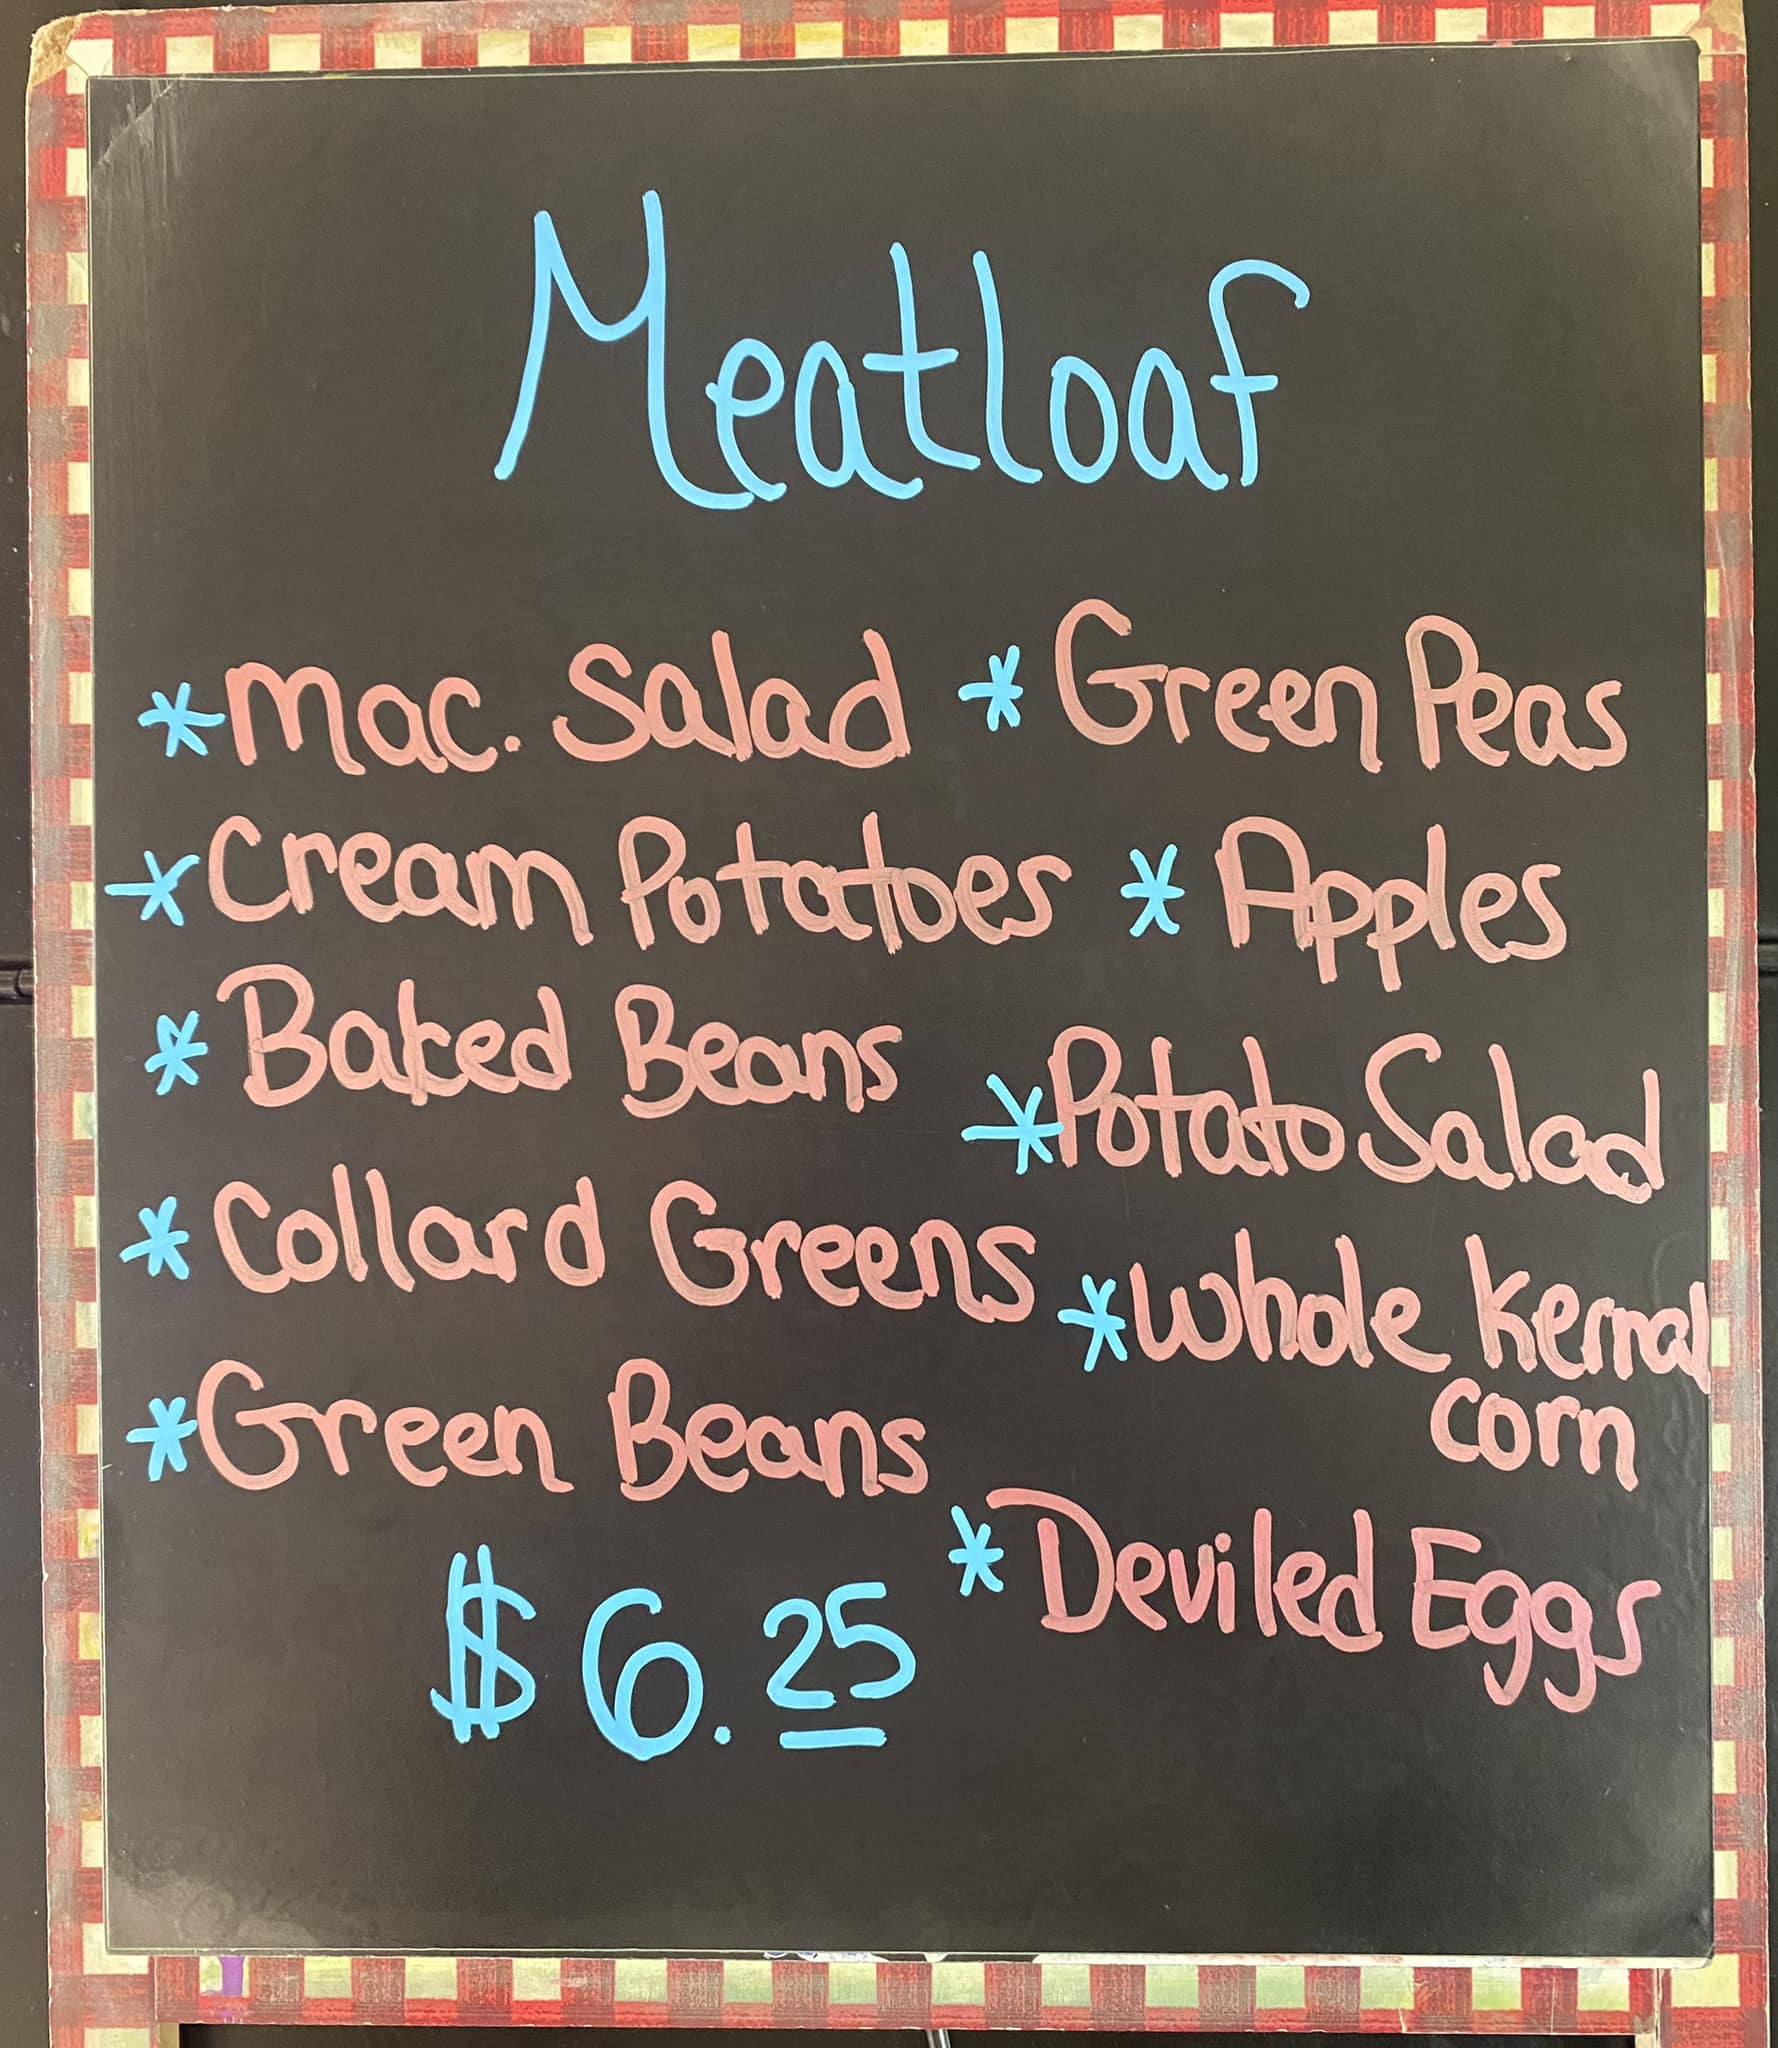 Meatloaf
* Mac. Salad
* Cream Potatoes
* Baked Beans
* Collard Greens
* Green Beans
* Green Peas
* Apples
* Potato Salad
* Whole Kernal
corn
* Deviled Eggs
$6.25